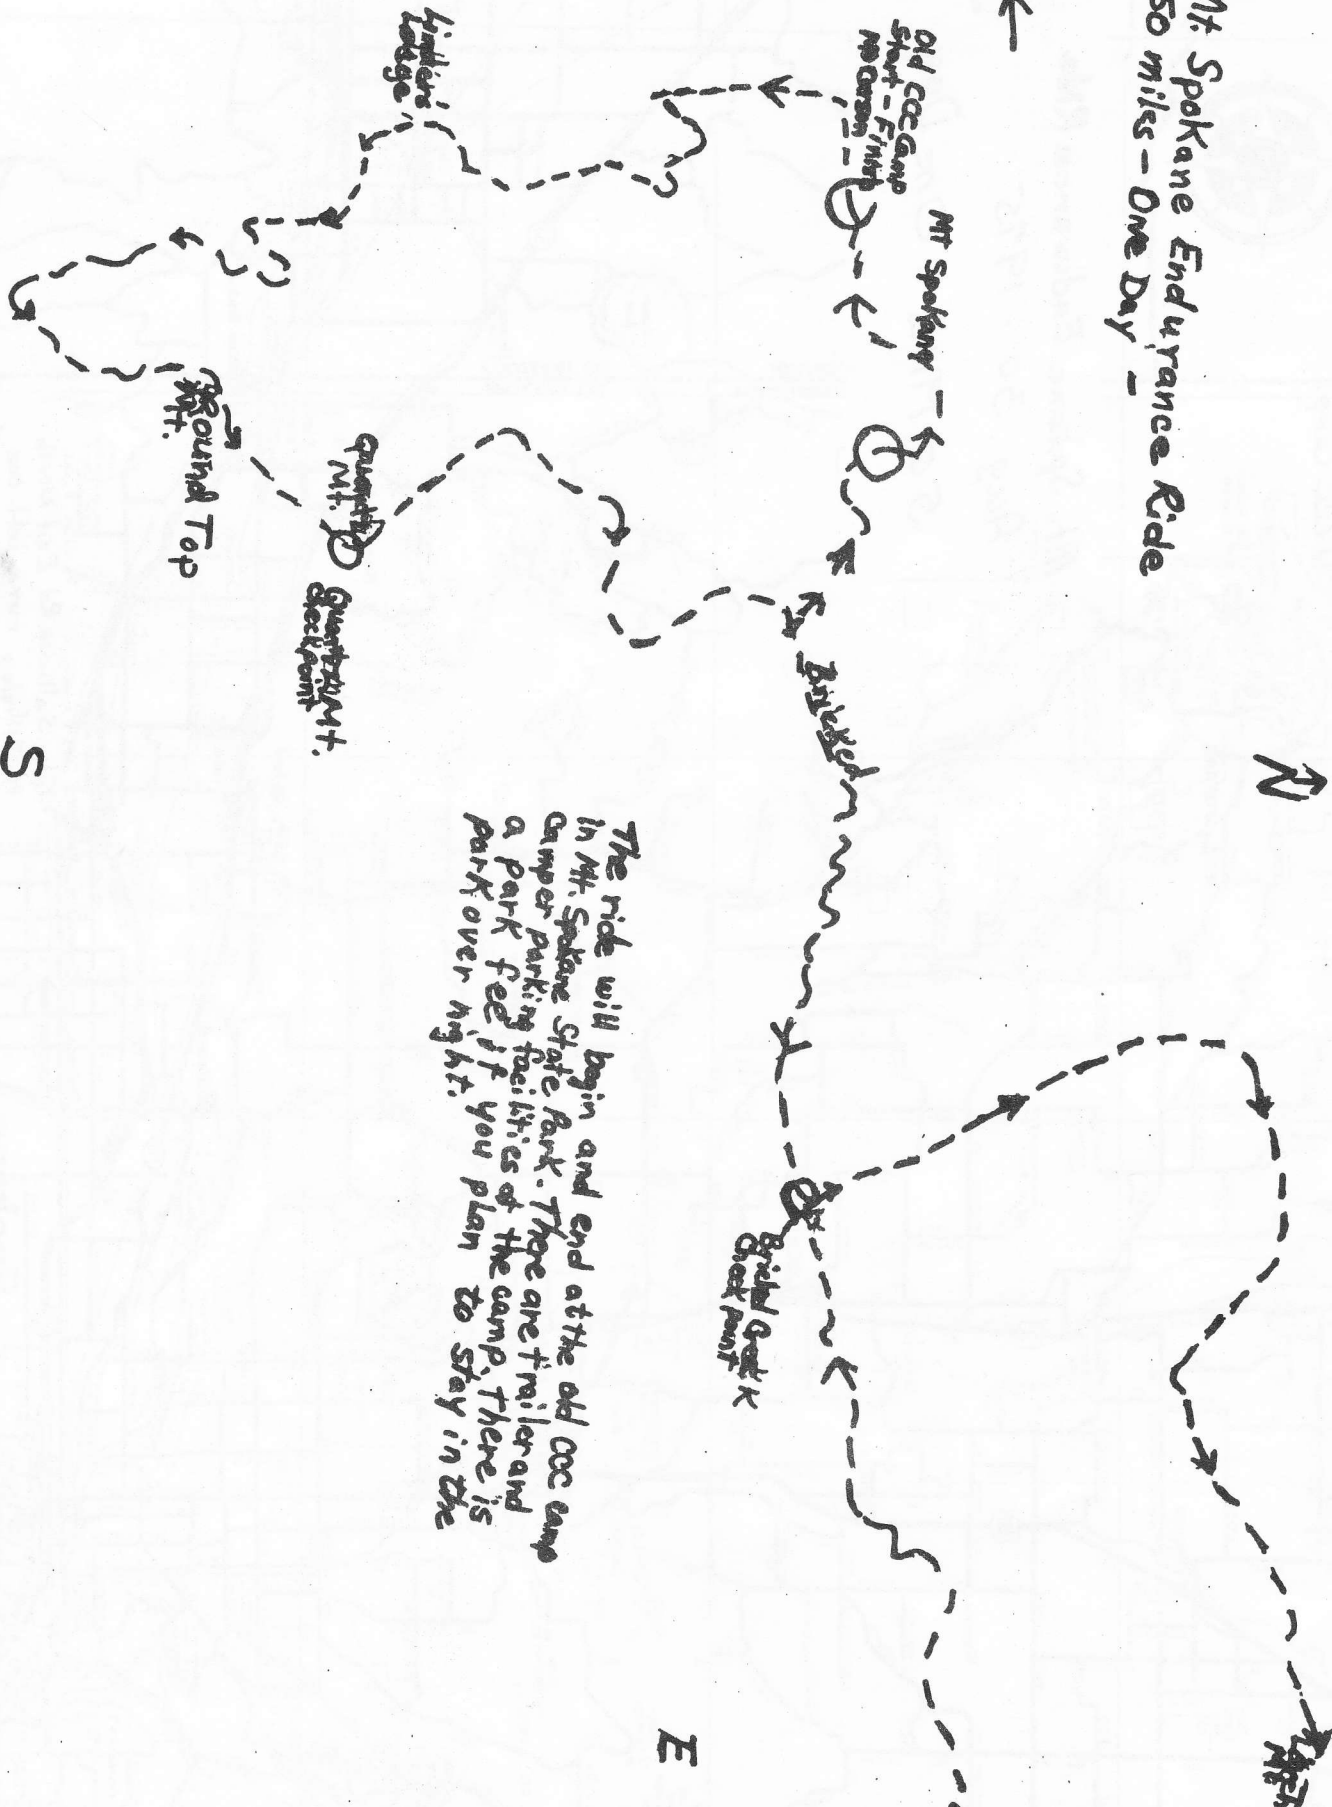 Mt. Spokane Endurance Ride
50 miles - One Day -
N
Old CCC Camp
Start - Finish
Mt Spokane
Linder's
Lodge
Round Top
Mt.
Quartz
Mt.
Quartz Mt.
Checkpoint
Brickel
Brickel Creek
Check point
The ride will begin and end at the old CCC camp
in Mt. Spokane State Park. There are trailer and
camper parking facilities at the camp. There is
a park fee if you plan to stay in the
park over night.
S
E